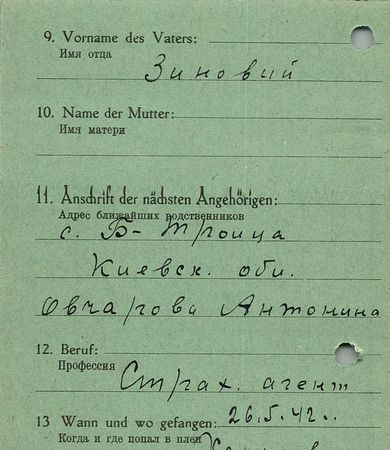 9. Vorname des Vaters:
Имя отца
Зиновий
10. Name der Mutter:
Имя матери
11. Anschrift der nächsten Angehörigen:
Адрес ближайших родственников
с. Б-Троица
Киевск. обл.
Овчарова Антонина
12. Beruf:
Профессия
Страх. агент
13 Wann und wo gefangen: 26.5.42г.
Когда и где попал в плен